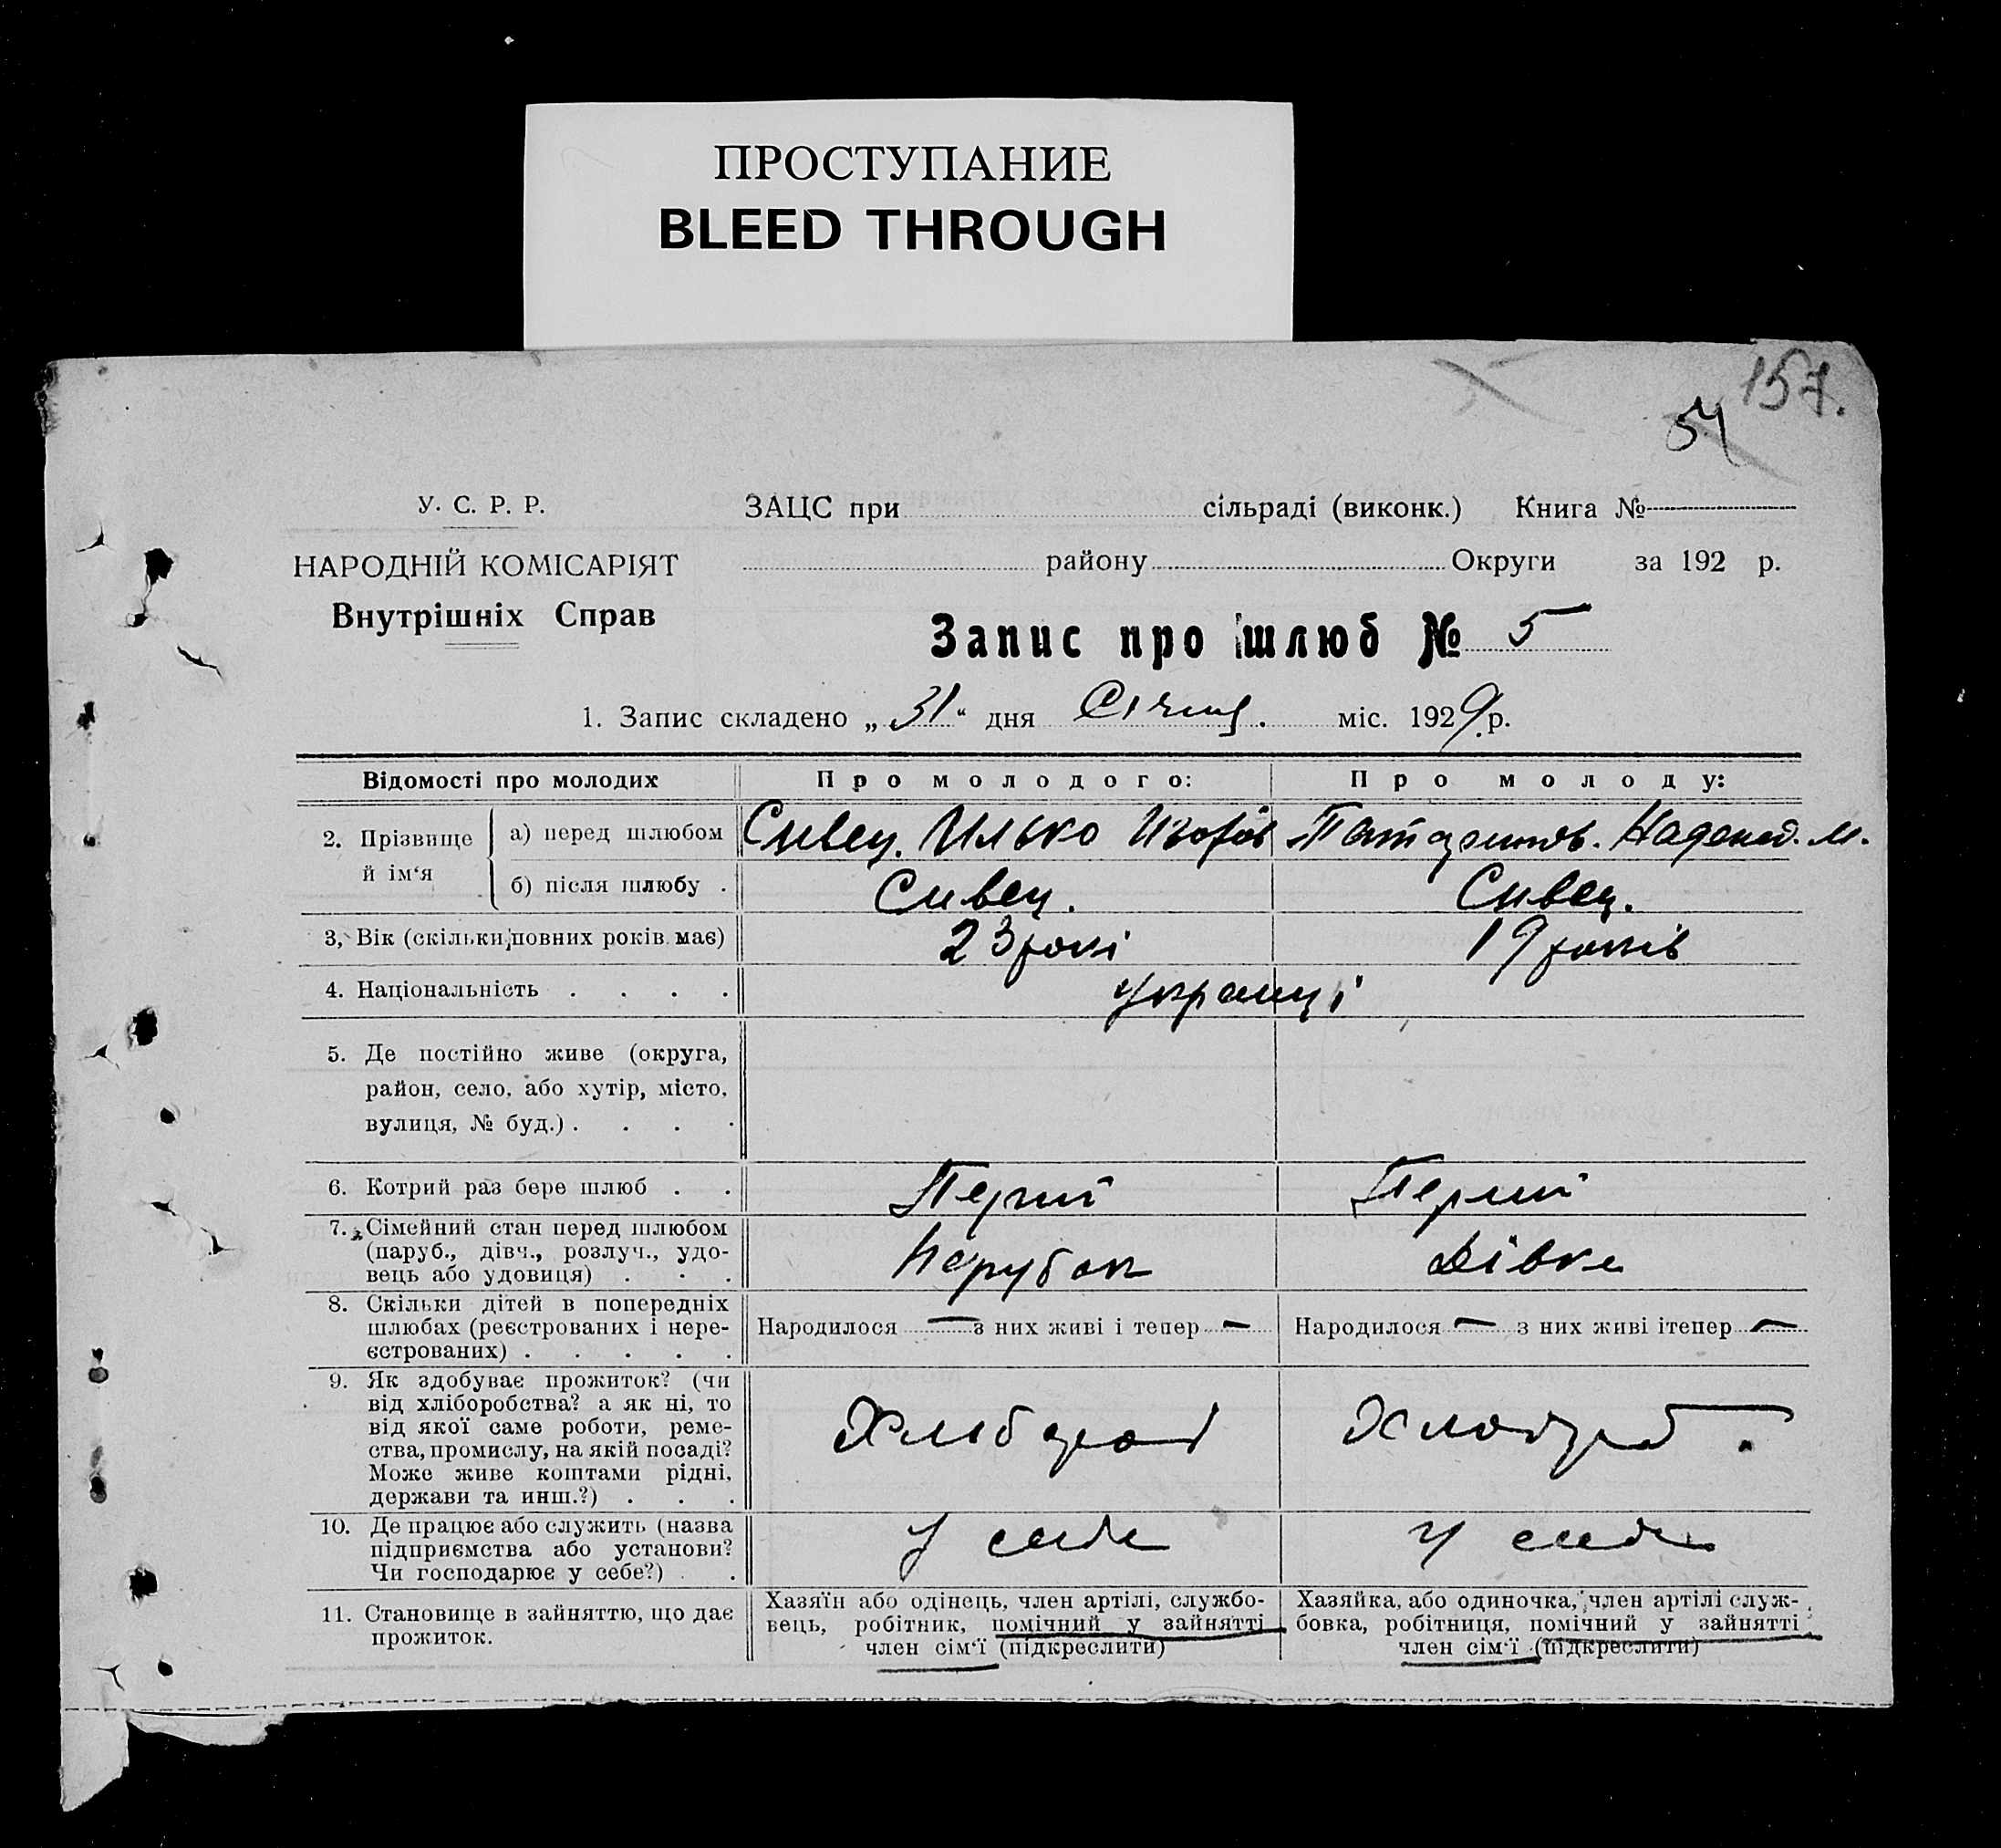 ПРОСТУПАНИЕ
BLEED THROUGH
157.
У. С. Р. Р.
НАРОДНІЙ КОМІСАРІЯТ
Внутрішніх Справ
ЗАЦС при сільраді (виконк.) Книга №
району Округи за 192 р.
Запис про шлюб № 5
1. Запис складено „ 31 “ дня Січня. міс. 1929 р.
Відомості про молодих Про молодого: Про молоду:
2. Прізвище й ім‘я
а) перед шлюбом Сивец. Илько
б) після шлюбу . Сивец. Сивец.
3. Вік (скільки повних років має) 23 рокі 19 років
4. Національність . . . . Україці
5. Де постійно живе (округа,
район, село, або хутір, місто,
вулиця, № буд.) . . . .
6. Котрий раз бере шлюб . . Перший Перший
7. Сімейний стан перед шлюбом
(паруб., дівч., розлуч., удо-
вець або удовиця) . . . Парубок Дівка
8. Скільки дітей в попередніх
шлюбах (реєстрованих і нере-
єстрованих) . . . . .
Народилося — з них живі і тепер —
Народилося — з них живі ітепер —
9. Як здобуває прожиток? (чи
від хліборобства? а як ні, то
від якої саме роботи, реме-
ства, промислу, на якій посаді?
Може живе коштами рідні,
держави та инш.?) . . .
10. Де працює або служить (назва
підприємства або установи?
Чи господарює у себе?) . .
у себе у себе
11. Становище в зайняттю, що дає
прожиток.
Хазяїн або одінець, член артілі, службо-
вець, робітник, помічний у зайнятті
член сім‘ї (підкреслити)
Хазяйка, або одиночка, член артілі служ-
бовка, робітниця, помічний у зайнятті
член сім‘ї (підкреслити)